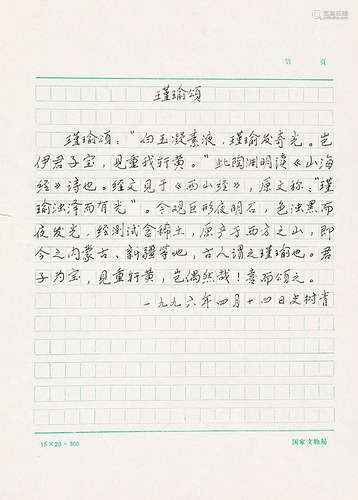 第 页
瑾瑜颂
瑾瑜颂：“白玉凝素液，瑾瑜发奇光。岂
伊君子宝，见重我轩黄。”此陶渊明读《山海
经》诗也。经文见于《西山经》，原文称：“瑾
瑜浊泽而有光”。今觇巨形夜明石，色浊黑而
夜发光，经测试含稀土，原产于西方之山，即
今之内蒙古、新疆等地，古人谓之瑾瑜也。君
子为宝，见重轩黄，岂偶然哉！喜而颂之。
一九九六年四月十四日史树青
15×20=300
国家文物局